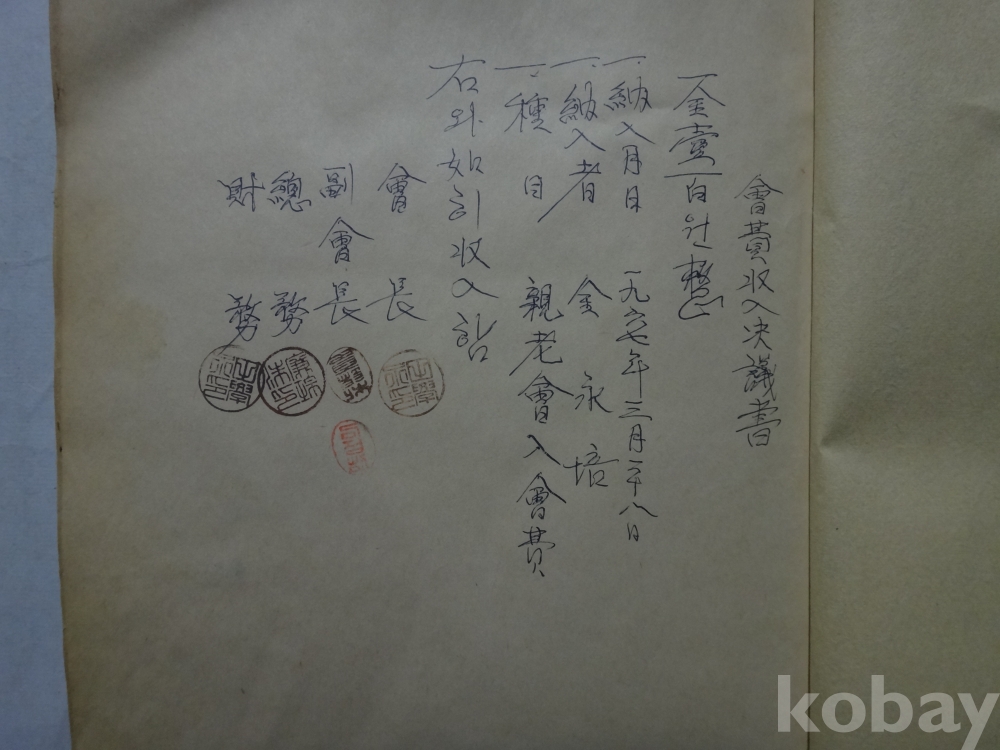 會費収入决議書
一金壹百원整
一. 納入月日 一九六七年三月二十八日
一. 納入者 金永培
一. 種目 親老會入會費
右와如히収入함
會長
副會長
總務
財務
kobay